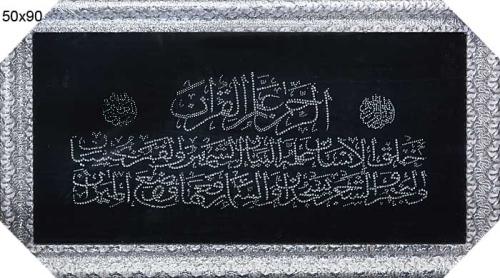 50x90
الرحمن علم القرآن
خلق الإنسان علمه البيان الشمس والقمر بحسبان
والنجم والشجر يسجدان والسماء رفعها ووضع الميزان